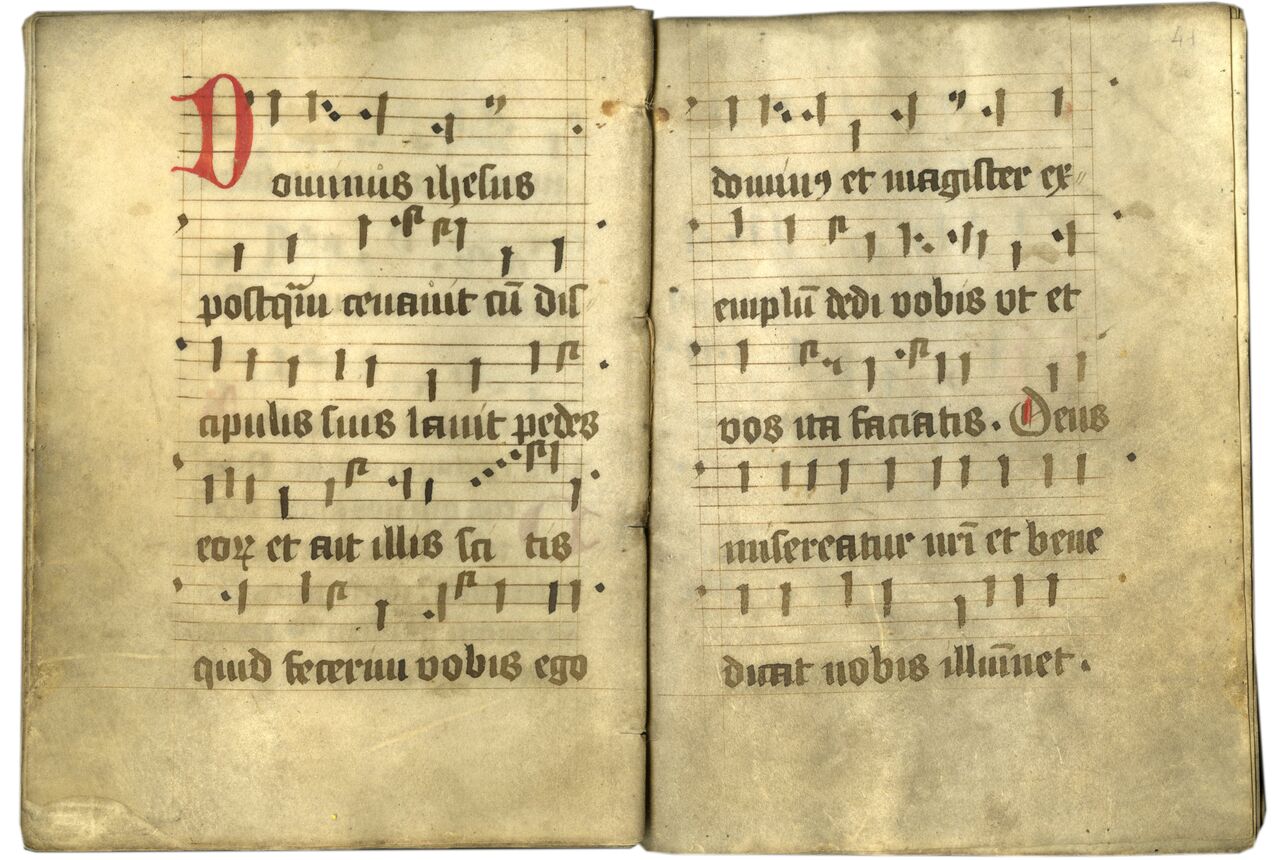 Dominus ihesus
postq̄m cenauit cū dis
cipulis suis lauit pedes
eoꝝ et ait illis sci tis
quid fecerim vobis ego
41
dominꝯ et magister ex⸗
emplū dedi vobis vt et
vos ita faciatis. Deus
misereatur nrī et bene
dicat nobis illumī̄et.